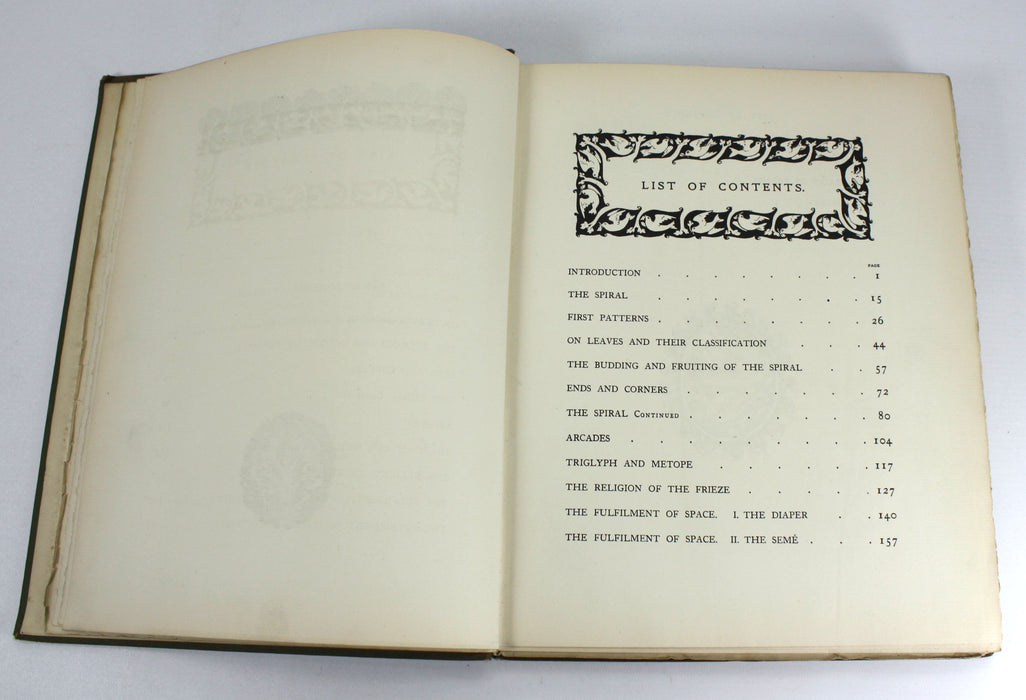 LIST OF CONTENTS.
PAGE
INTRODUCTION . . . . . . . . 1
THE SPIRAL . . . . . . . . 15
FIRST PATTERNS . . . . . . . . 26
ON LEAVES AND THEIR CLASSIFICATION . . . 44
THE BUDDING AND FRUITING OF THE SPIRAL . . 57
ENDS AND CORNERS . . . . . . . 72
THE SPIRAL CONTINUED . . . . . . . 80
ARCADES . . . . . . . . . 104
TRIGLYPH AND METOPE . . . . . . 117
THE RELIGION OF THE FRIEZE . . . . . 127
THE FULFILMENT OF SPACE. I. THE DIAPER . . 140
THE FULFILMENT OF SPACE. II. THE SEMÉ . . . 157